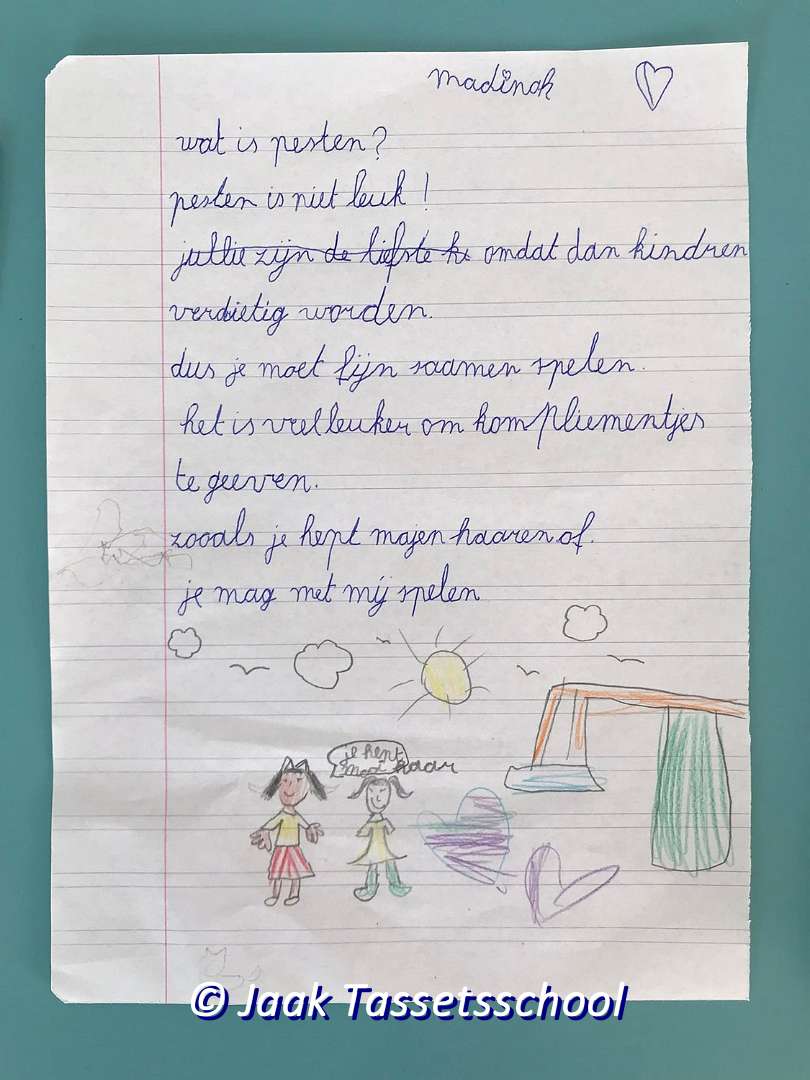 madinah
wat is pesten?
pesten is niet leuk!
jullie zijn de liefste ki omdat dan kindren
verdietig worden.
dus je moet fijn saamen spelen.
het is veel leuker om kompliementjes
te geeven.
zooals je hept mojen haaren of.
je mag met mij spelen
je hept
mooi haar
© Jaak Tassetsschool